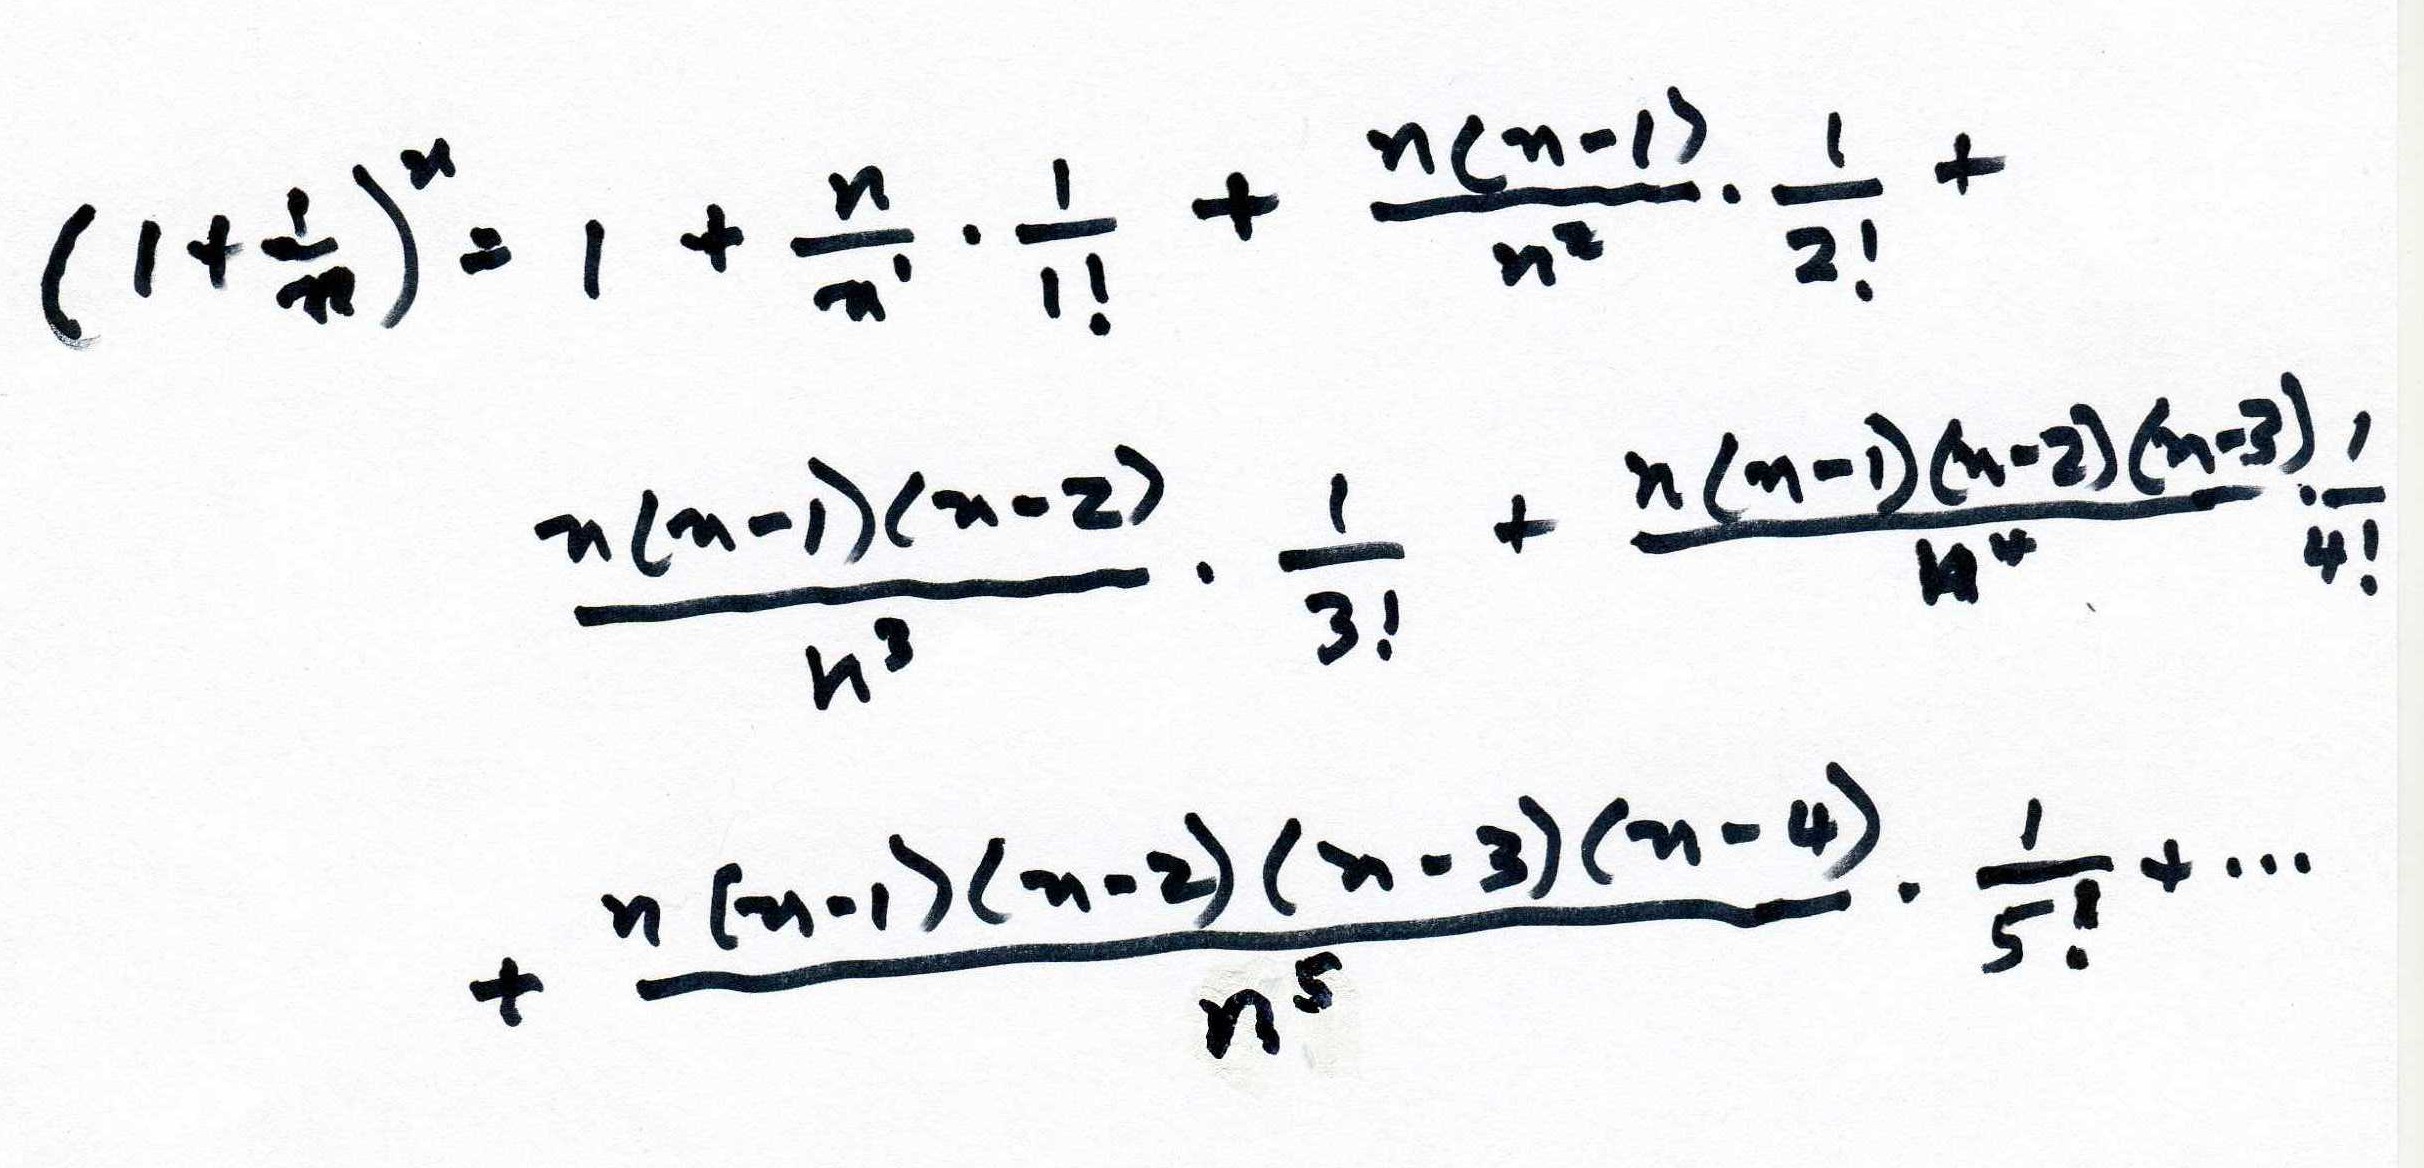 (1+1/n)^n = 1 + n/n^1 · 1/1! + n(n-1)/n^2 · 1/2! +
n(n-1)(n-2)/n^3 · 1/3! + n(n-1)(n-2)(n-3)/n^4 · 1/4!
+ n(n-1)(n-2)(n-3)(n-4)/n^5 · 1/5! + ...